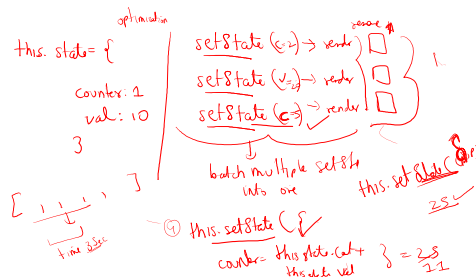 optimization
this. state = {
counter: 1
val: 10
}
setState (c=2) → render
setState (v=20) → render
setState (c=3) → render
batch multiple setState
into one
[ , , , , ]
time 3 sec
this.setState(
25
this.setState ( {
counter= this.state.Cat +
this.state.val
} = 25
11